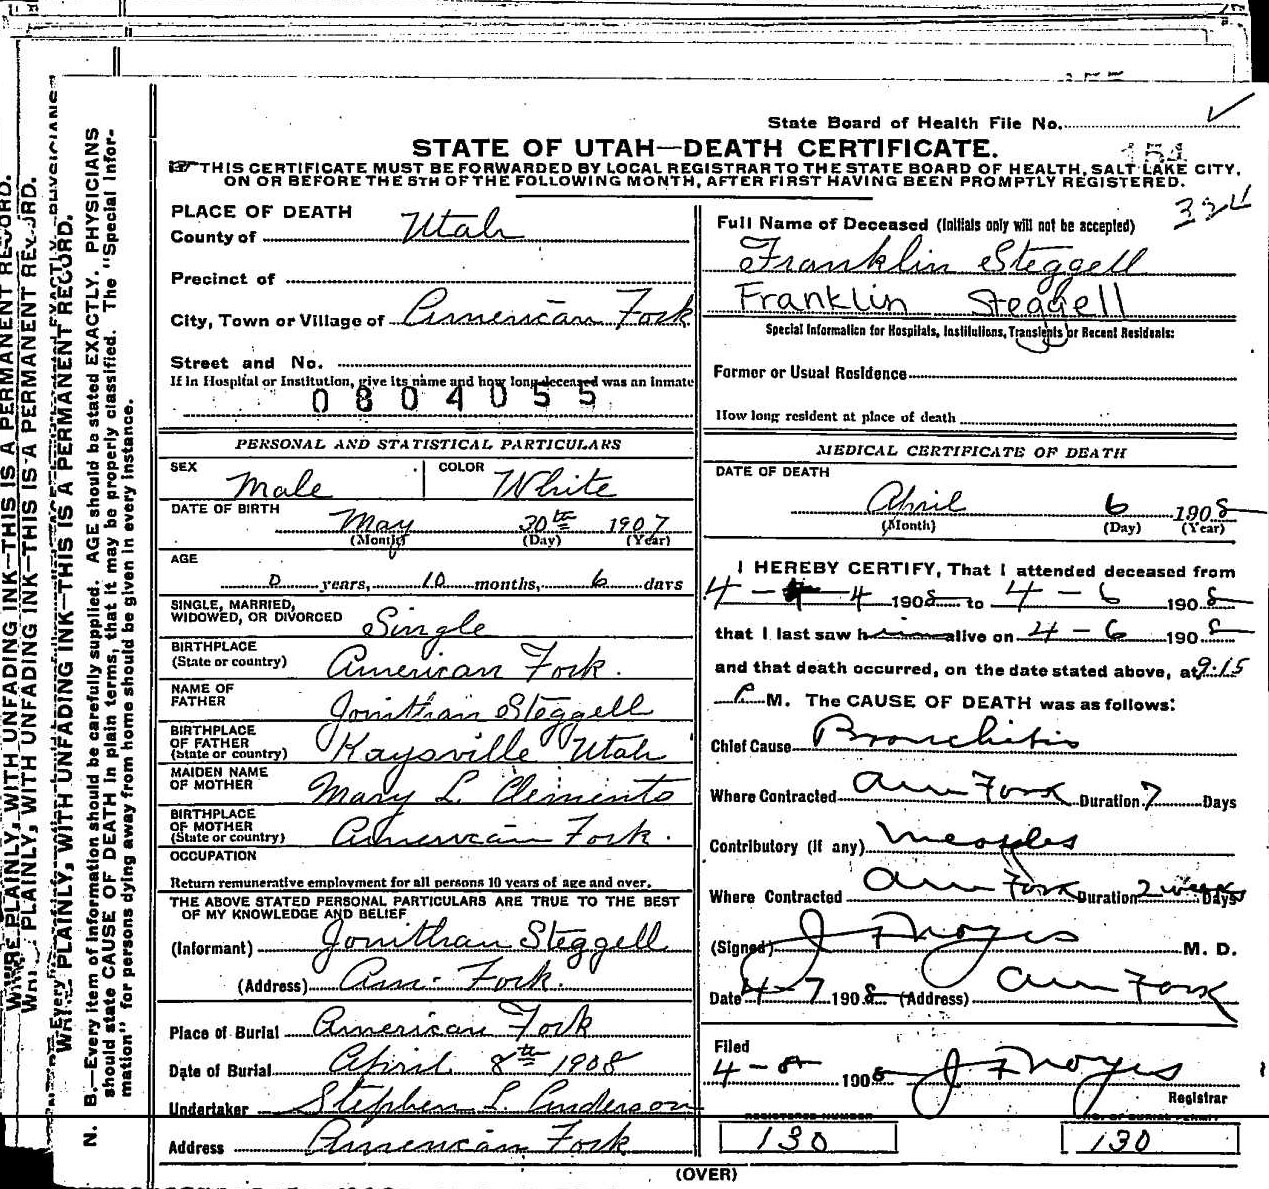 State Board of Health File No.
STATE OF UTAH—DEATH CERTIFICATE.
154
THIS CERTIFICATE MUST BE FORWARDED BY LOCAL REGISTRAR TO THE STATE BOARD OF HEALTH, SALT LAKE CITY,
ON OR BEFORE THE 5TH OF THE FOLLOWING MONTH, AFTER FIRST HAVING BEEN PROMPTLY REGISTERED.
PLACE OF DEATH
County of Utah
Precinct of
City, Town or Village of American Fork
Street and No.
If in Hospital or Institution, give its name and how long deceased was an inmate
0804055
PERSONAL AND STATISTICAL PARTICULARS
SEX Male COLOR White
DATE OF BIRTH May 30th 1907
(Month) (Day) (Year)
AGE 0 years, 10 months, 6 days
SINGLE, MARRIED,
WIDOWED, OR DIVORCED Single
BIRTHPLACE
(State or country) American Fork.
NAME OF
FATHER Jonithan Steggell
BIRTHPLACE
OF FATHER
(State or country) Kaysville Utah
MAIDEN NAME
OF MOTHER Mary L. Clements
BIRTHPLACE
OF MOTHER
(State or country) American Fork.
OCCUPATION
Return remunerative employment for all persons 10 years of age and over.
THE ABOVE STATED PERSONAL PARTICULARS ARE TRUE TO THE BEST
OF MY KNOWLEDGE AND BELIEF
(Informant) Jonithan Steggell
(Address) Am. Fork.
Place of Burial American Fork
Date of Burial April 8th 1908
Undertaker Stephen L. Anderson
Address American Fork
334
Full Name of Deceased (Initials only will not be accepted)
Franklin Steggell
Franklin Steggell
Special Information for Hospitals, Institutions, Transients or Recent Residents:
Former or Usual Residence
How long resident at place of death
MEDICAL CERTIFICATE OF DEATH
DATE OF DEATH
April 6 1908
(Month) (Day) (Year)
I HEREBY CERTIFY, That I attended deceased from
4 - 4 1908 to 4 - 6 1908
that I last saw him alive on 4 - 6 1908
and that death occurred, on the date stated above, at 9:15
P. M. The CAUSE OF DEATH was as follows:
Chief Cause Bronchitis
Where Contracted Am Fork Duration 7 Days
Contributory (If any) Measles
Where Contracted Am Fork Duration 2 weeks Days
(Signed) J F Noyes M. D.
Date 4-7 1908 (Address) Am Fork
Filed
4-8 1908 J F Noyes
Registrar
REGISTERED NUMBER
130 130
(OVER)
WRITE PLAINLY, WITH UNFADING INK—THIS IS A PERMANENT RECORD.
N. B.—Every item of information should be carefully supplied. AGE should be stated EXACTLY. PHYSICIANS
should state CAUSE OF DEATH in plain terms, that it may be properly classified. The "Special Infor-
mation" for persons dying away from home should be given in every instance.